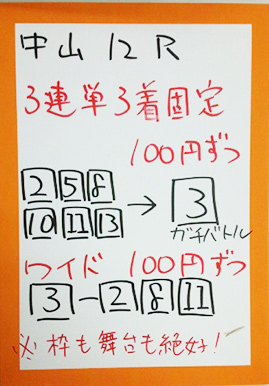 中山 12R
3連単3着固定
100円ずつ
2 5 8
10 11 13 → 3
ガチバトル
ワイド 100円ずつ
3-2 8 11
※枠も舞台も絶好!